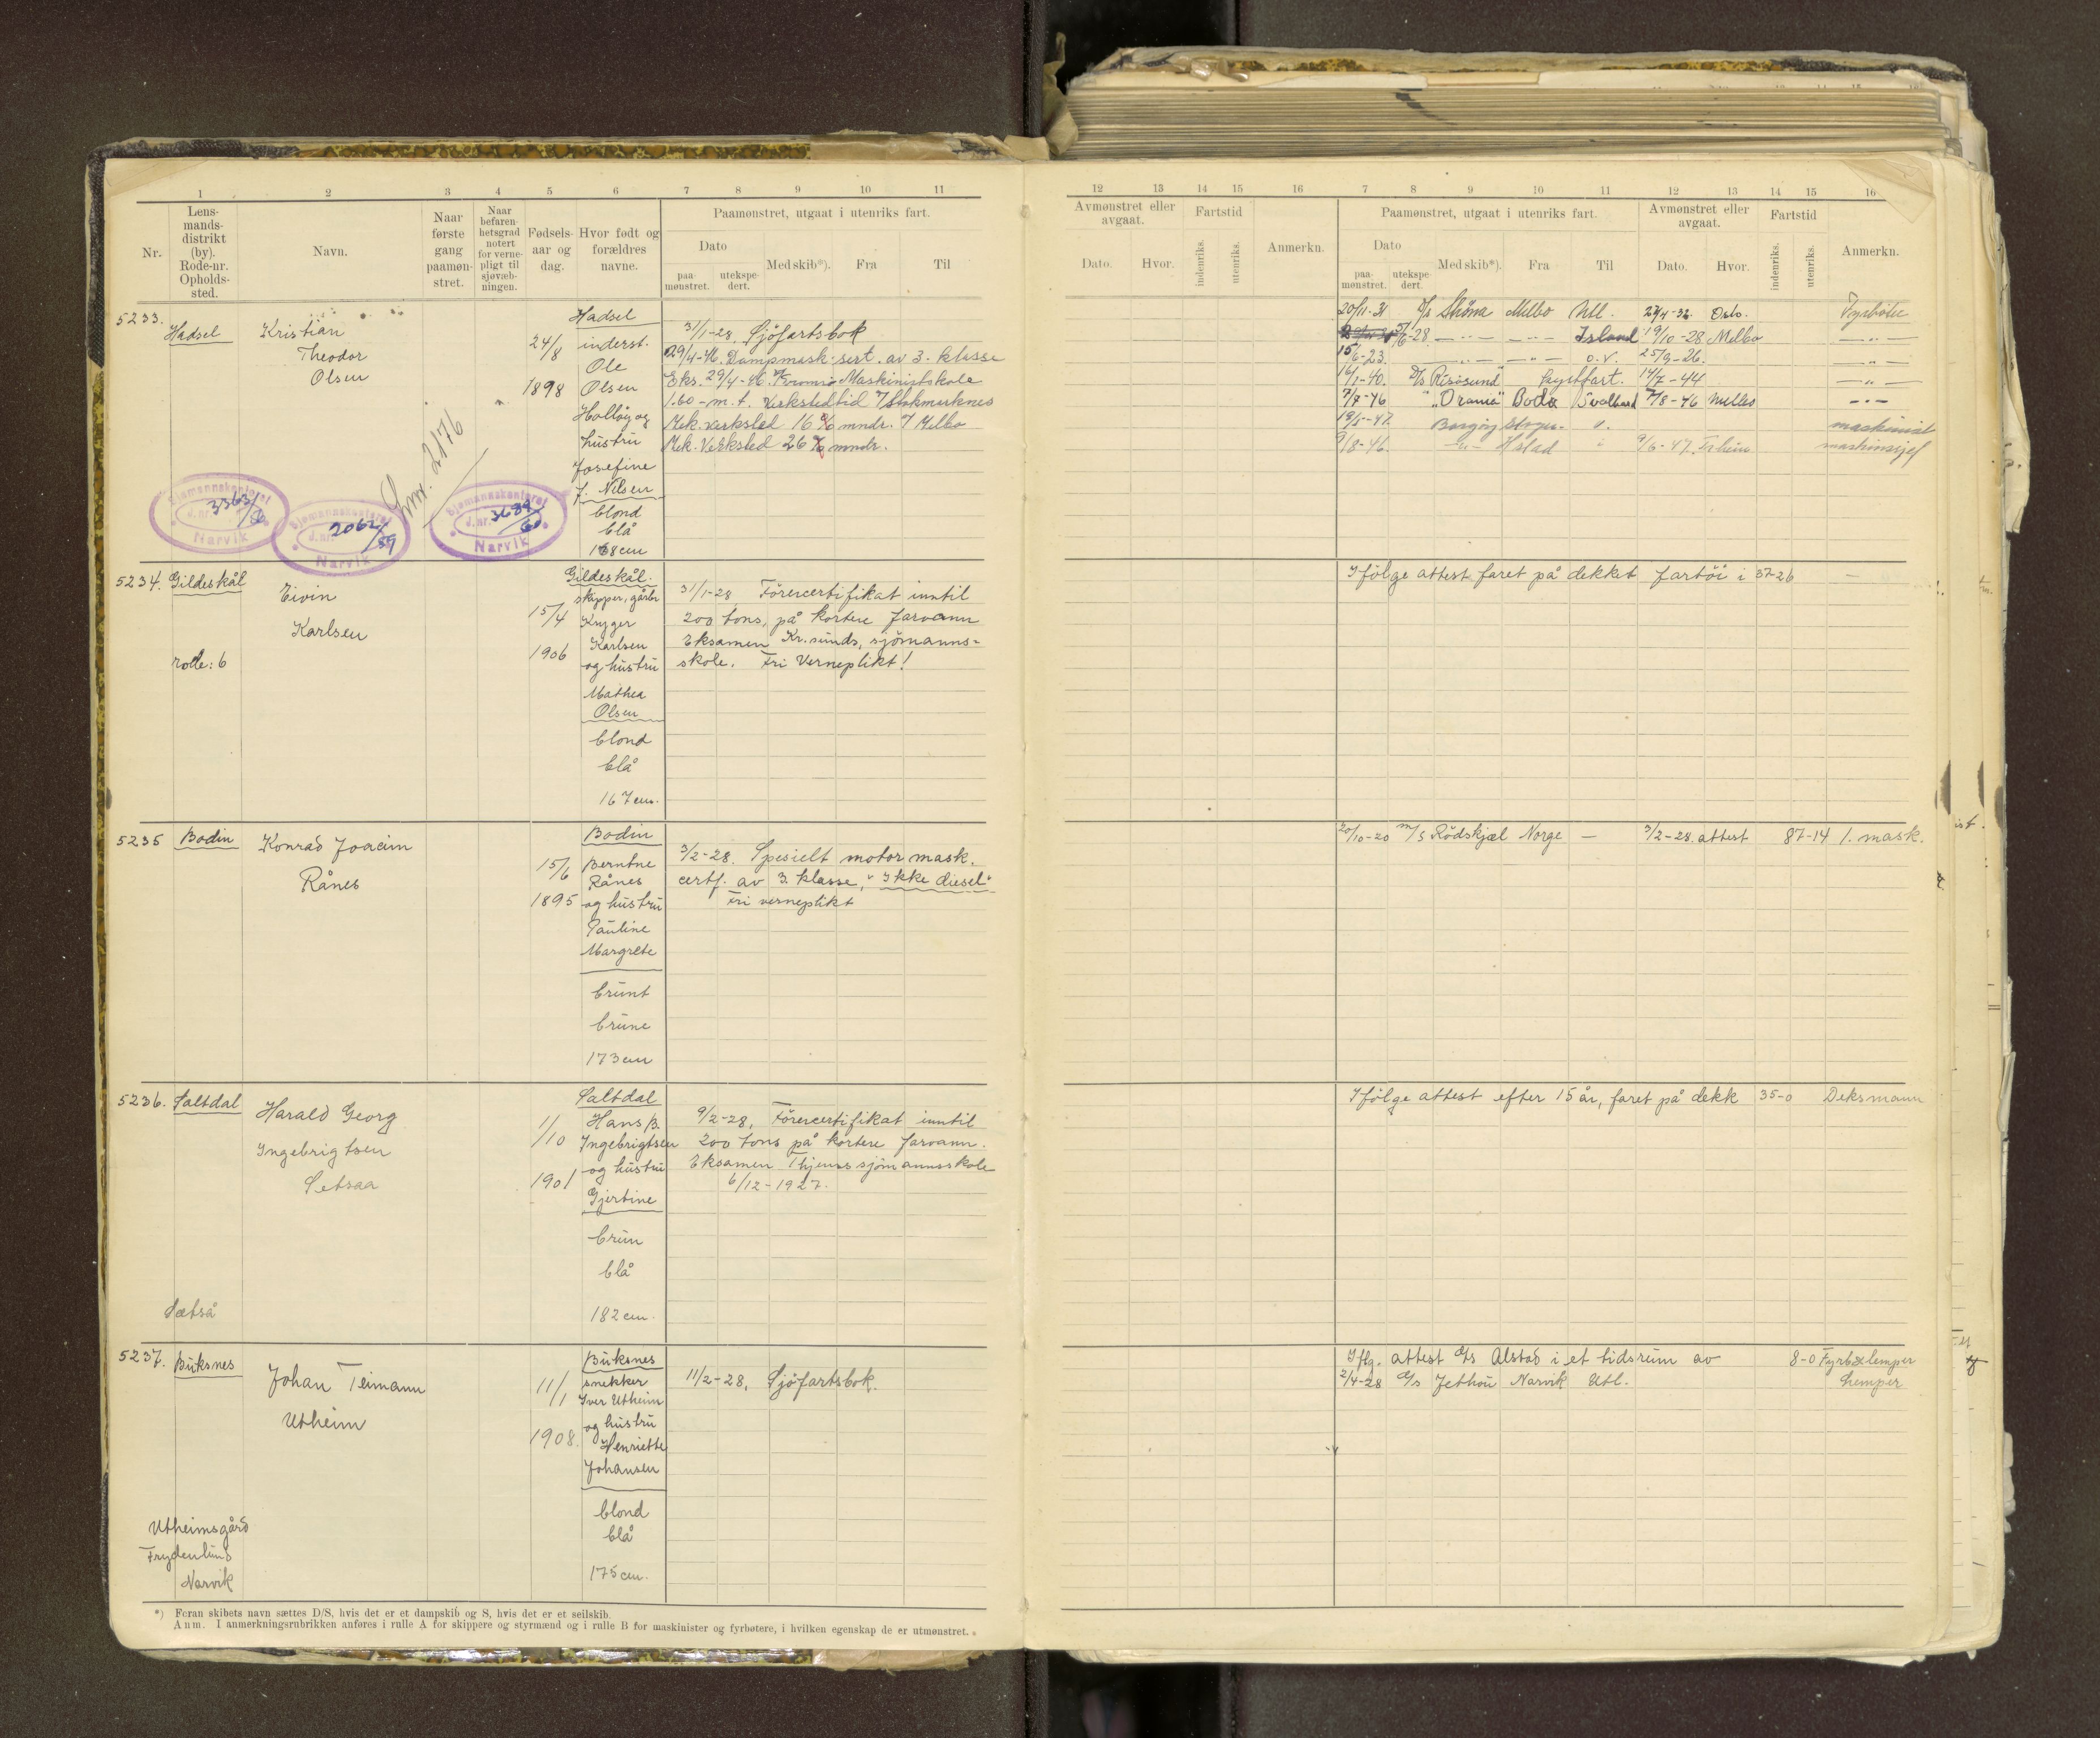 1 2 3 4 5 6 7 8 9 10 11
Nr.
Lens-
mands-
distrikt
(by).
Rode-nr.
Opholds-
sted.
Navn.
Naar
første
gang
paamøn-
stret.
Naar
befaren-
hetsgrad
notert
for verne-
pligt til
sjøvæb-
ningen.
Fødsels-
aar og
dag.
Hvor født og
forældres
navne.
Paamønstret, utgaat i utenriks fart.
Dato
paa-
mønstret.
utekspe-
dert.
Med skib*).
Fra
Til
5233.
Hadsel
Kristian
Theodor
Olsen
24/8
1898
Hadsel
inderst.
Ole
Olsen
og
hustru
Josefine
J. Nilsen
blond
blå
168 cm
31/1-28. Sjöfartsbok
29/4-46. Dampmask. sert. av 3. klasse
Eks. 29/4-46. Maskinistskole
1.60 - m.t. Verkstedtid
Mek. Verksted 16 mndr. Melbo
Mek. Verksted 26 mndr.
2176
Sjømannskontoret
J.nr. 3363/56
Narvik
Sjømannskontoret
J.nr. 2062/59
Narvik
Sjømannskontoret
J.nr. 3689/60
Narvik
5234. Gildeskål
rode: 6
Eivin
Karlsen
15/4
1906
Gildeskål.
skipper, gårbr
Kryger
Karlsen
og hustru
Mathea
Olsen
blond
blå
167 cm.
31/1-28 Förercertifikat inntil
200 tons, på kortere farvann
Eksamen Kr.sunds, sjömanns-
skole. Fri Verneplikt!
5235 Bodin
Konrad Joacim
Rånes
15/6
1895
Bodin
Berntne
Rånes
og hustru
Pauline
Margrete
brunt
brune
173 cm
3/2-28. Spesielt motor mask.
certf. av 3. klasse, "Ikke diesel"
Fri verneplikt
5236. Saltdal
Sætså
Harald Georg
Ingebrigtsen
Setsaa
1/10
1901
Saltdal
Hans B.
Ingebrigtsen
og hustru
Gjertine
brun
blå
182 cm.
9/2-28, Förercertifikat inntil
200 tons på kortere farvann.
Eksamen Thjems sjömannsskole
6/12-1927.
5237. Buksnes
Johan Teimann
Utheim
11/1
1908.
Buksnes
snekker
Iver Utheim
og hustru
Henriette
Johansen
blond
blå
175 cm.
11/2-28, Sjöfartsbok.
Utheimsgård
Frydenlund
Narvik
*) Foran skibets navn sættes D/S, hvis det er et dampskib og S, hvis det er et seilskib.
Anm. I anmerkningsrubrikken anføres i rulle A for skippere og styrmænd og i rulle B for maskinister og fyrbøtere, i hvilken egenskap de er utmønstret.
12 13 14 15 16 7 8 9 10 11 12 13 14 15 16
Avmønstret eller
avgaat.
Dato.
Hvor.
Fartstid
indenriks.
utenriks.
Anmerkn.
Paamønstret, utgaat i utenriks fart.
Dato
paa-
mønstret.
utekspe-
dert.
Med skib*).
Fra
Til
Avmønstret eller
avgaat.
Dato.
Hvor.
Fartstid
indenriks.
utenriks.
Anmerkn.
20/11-31 Melbo Utl. Oslo. Fyrböter
5/6-28 — " — — " — Island 19/10-28 Melbo — " —
15/6-23. — " — — " — 25/9-26. — " —
16/1-40. D/S "Risösund" 14/7-44 — " —
7/7-46 Bodø Svalbard 7/8-46 — " —
19/5-47. maskinist
9/8-46. — " — H.stad 9/6-47. Tr.heim
Ifölge attest faret på dekket fartöi i 37-26 —
20/10-20 M/S Rödskjæl Norge — 3/2-28 attest 87-14 1. mask.
Ifölge attest efter 15 år, faret på dekk 35-0 Deksmann
Iflg. attest D/s Alstad i et tidsrum av 8-0 Fyrb & lemper
2/4-28 D/s Jethou Narvik Utl. Lemper